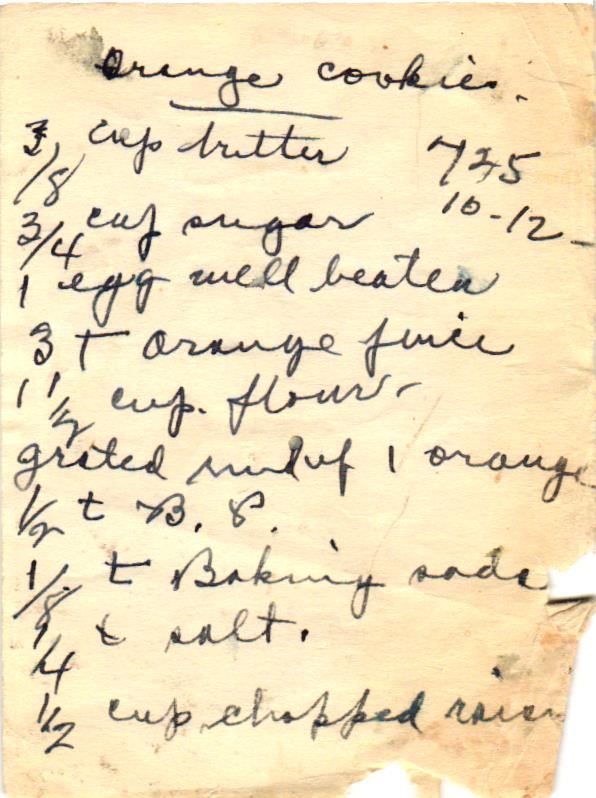 Orange cookies.
3/8 cup butter 725
3/4 cup sugar 10-12-
1 egg well beaten
3 T orange juice
1 1/2 cup. flour
grated rind of 1 orange
1/2 t B. P.
1/8 t Baking soda
1/4 t salt.
1/2 cup chopped raisi